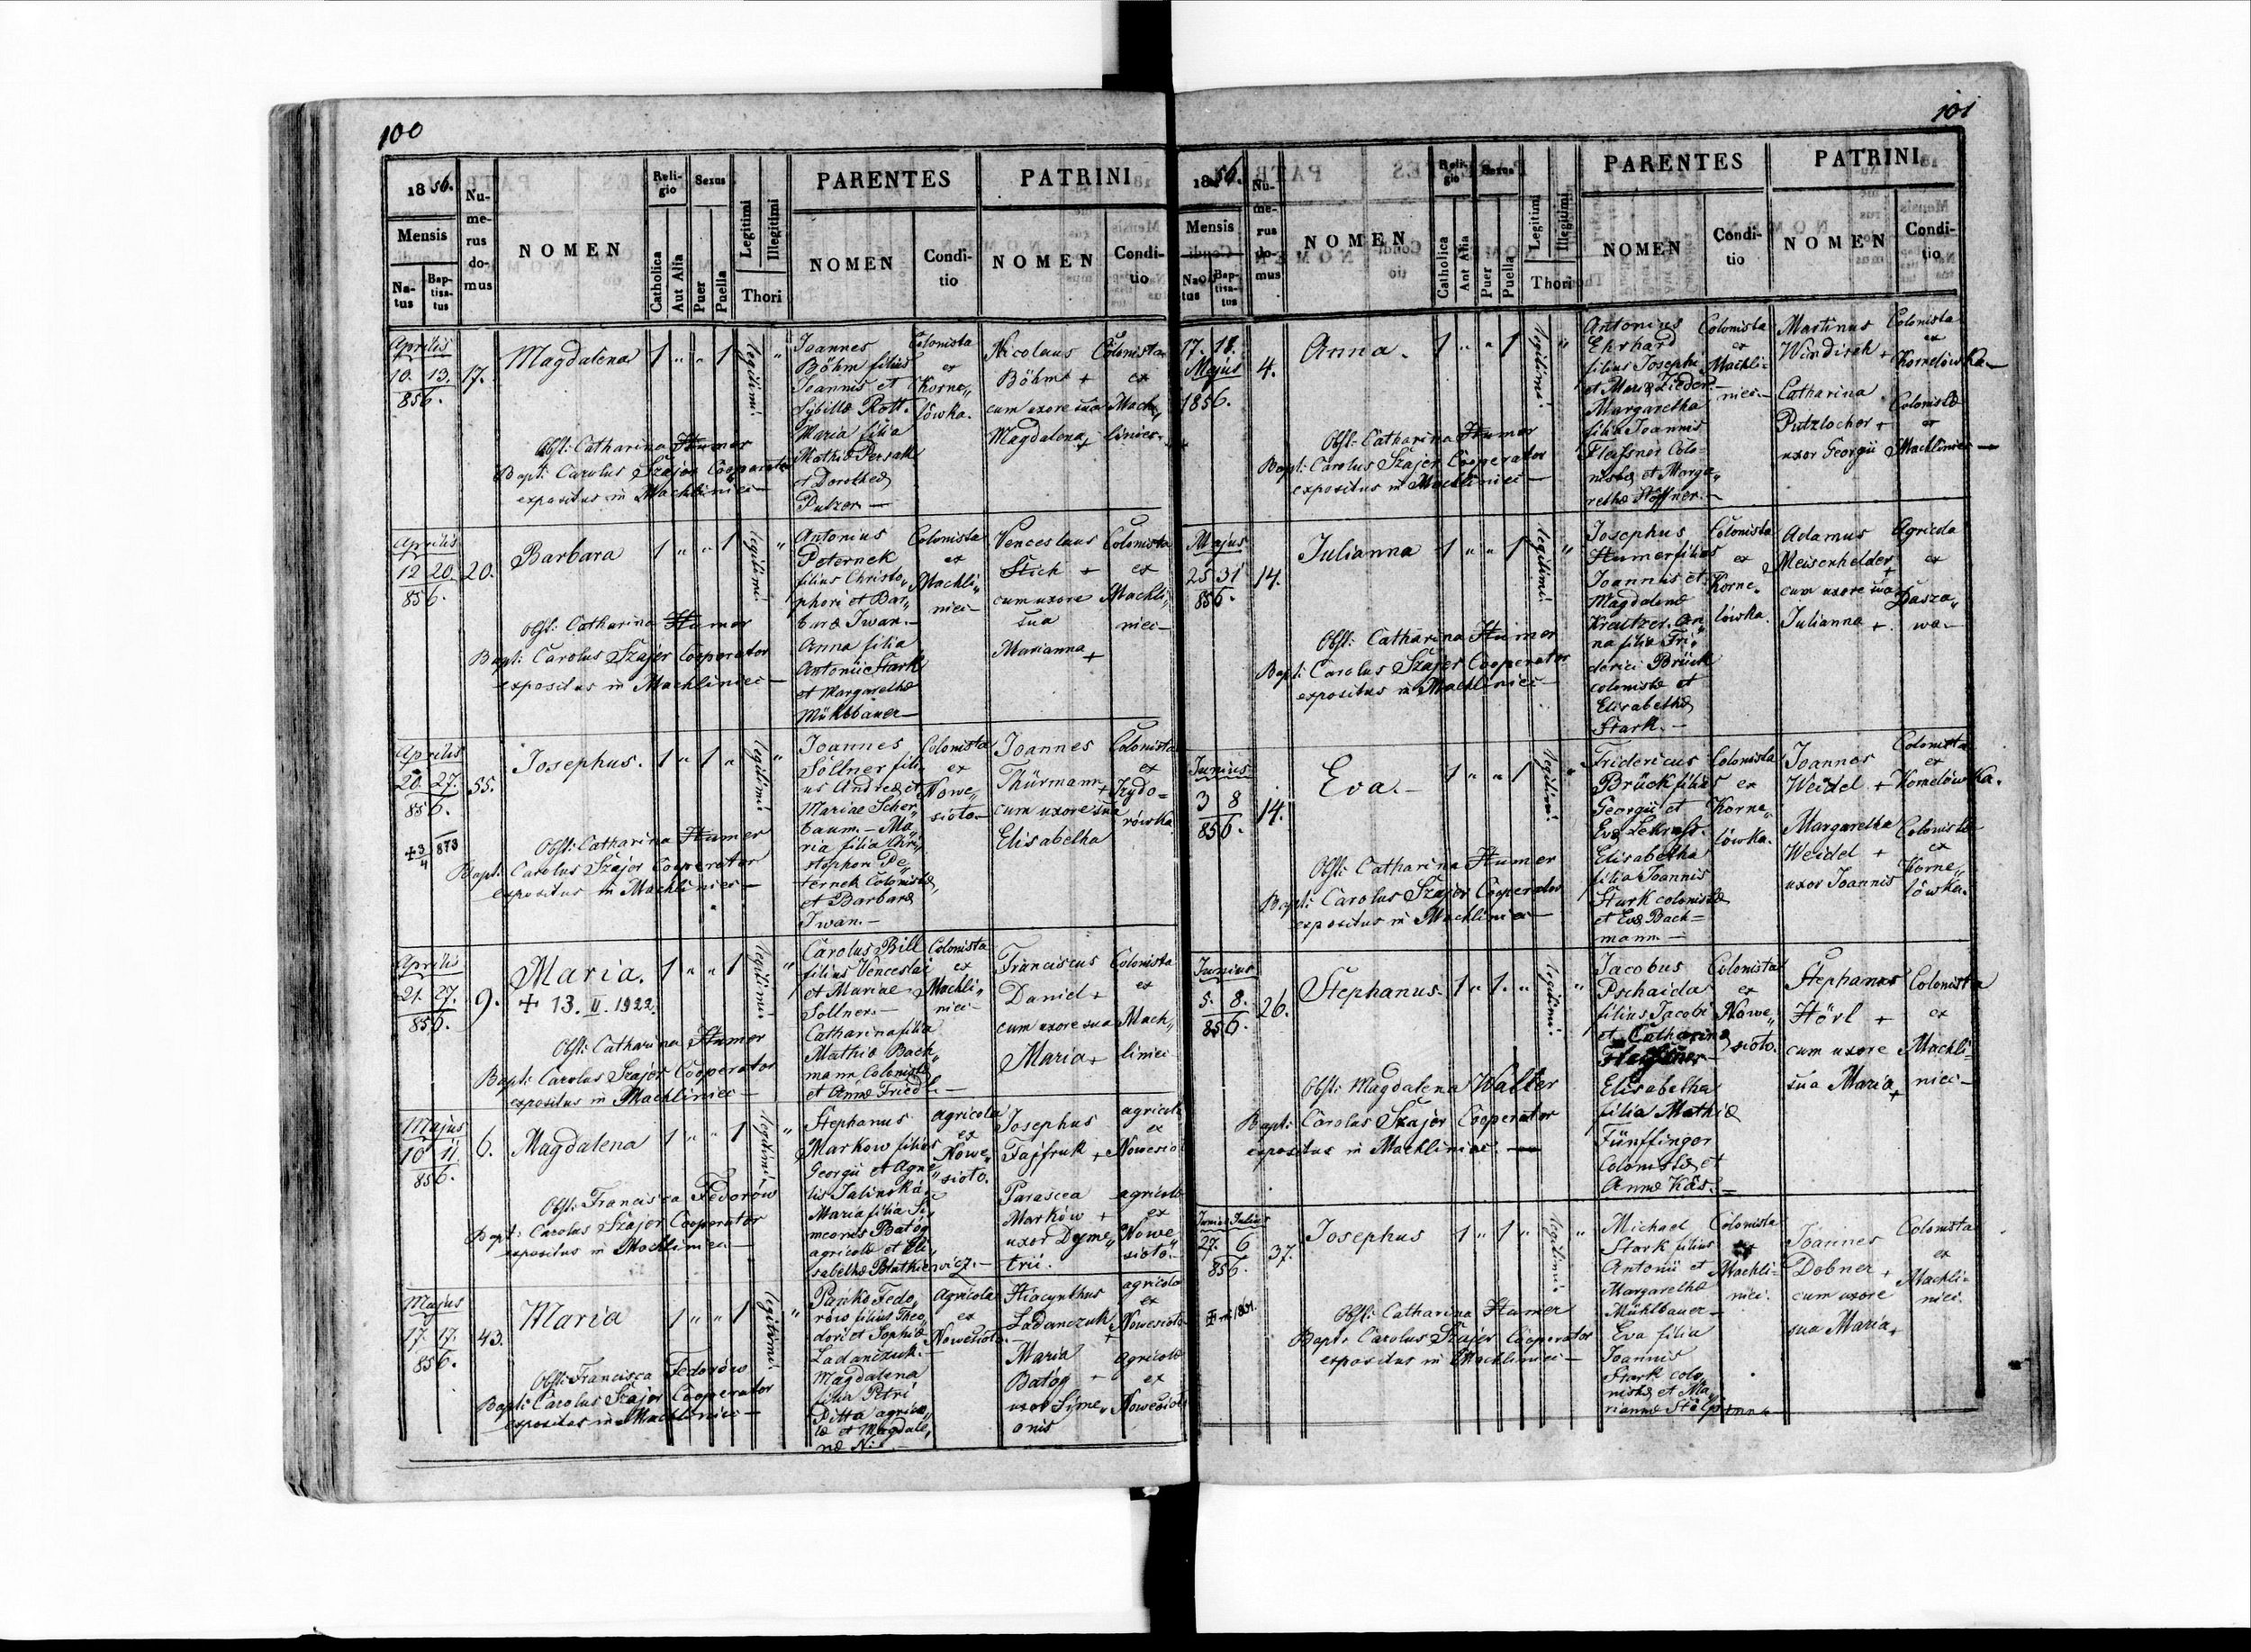 100
1856.
Mensis
Na-
tus
Bap-
tisa-
tus
Nu-
me-
rus
do-
mus
NOMEN
Reli-
gio
Catholica
Aut Alia
Sexus
Puer
Puella
Legitimi
Illegitimi
Thori
PARENTES
NOMEN
Condi-
tio
PATRINI
NOMEN
Condi-
tio
Aprilis
10. 13.
856.
17.
Magdalena
1 " " 1 legitimi "
Obst: Catharina Humer
Bapt: Carolus Szajer Cooperator
expositus in Machliniec —
Joannes
Böhm filius
Joannis et
Sybillæ Rott.
Maria filia
Mathiæ Persak
et Dorotheæ
Putzer. —
Colonista
ex
Korne„
lówka.
Nicolaus
Böhm +
cum uxore sua
Magdalena +
Colonista
ex
Mach„
liniec.
Aprilis
12 20.
856.
20.
Barbara
1 " " 1 legitimi "
Obst: Catharina Humer
Bapt: Carolus Szajer Cooperator
expositus in Machliniec —
Antonius
Peternek
filius Christo„
phori et Bar„
baræ Iwan. —
Anna filia
Antonii Stark
et Margarethæ
Mühlbauer —
Colonista
ex
Machli„
niec —
Venceslaus
Stich +
cum uxore
sua
Marianna +
Colonista
ex
Machli„
niec —
Aprilis
20. 27.
856.
+ 3/4 873
55.
Josephus.
1 " 1 " legitimi "
Obst: Catharina Humer
Bapt: Carolus Szajer Cooperator
expositus in Machliniec —
Joannes
Söllner fili„
us Andreæ et
Mariae Scher„
baum. — Ma„
ria filia Chri„
stophori Pe„
ternek Colonistæ
et Barbaræ
Iwan. —
Colonista
ex
Nowe„
sioło —
Joannes
Thürmann +
cum uxore sua
Elisabetha
Colonista
ex
Izydo=
rówka
Aprilis
21. 27.
856.
9.
Maria.
+ 13. II. 1922.
1 " " 1 legitimi "
Obst: Catharina Humer
Bapt: Carolus Szajer Cooperator
expositus in Machliniec —
Carolus Bill
filius Venceslai
et Mariae
Sollner. —
Catharina filia
Mathiæ Bach„
mann Colonistæ
et Annæ Friedl. —
Colonista
ex
Machli„
niec —
Franciscus
Daniel +
cum uxore sua
Maria +
Colonista
ex
Mach„
liniec
Majus
10 11.
856.
6.
Magdalena
1 " " 1 legitimi "
Obst: Francisca Fedorów
Bapt: Carolus Szajer Cooperator
expositus in Machliniec —
Stephanus
Markow filius
Georgii et Agne„
tis Jalinska.
Maria filia Si„
meonis Batóg
agricolæ et Eli„
sabethæ Blatkiewicz. —
agricola
ex
Nowe„
sioło.
Josephus
Fajfruk +
Parascea
Marków +
uxor Dyme„
trii.
agricola
ex
Nowesioło
agricolæ
ex
Nowe„
sioło. —
Majus
17. 17.
856.
43.
Maria
1 " " 1 legitimi "
Obst: Francisca Fedorów
Bapt: Carolus Szajer Cooperator
expositus in Machliniec —
Pańko Fedo„
rów filius Theo„
dori et Sophiæ
Ladańczuk. —
Magdalena
filia Petri
Pitta agrico„
læ et Magdale„
næ N: —
Agricola
ex
Nowesioło.
Hiacynthus
Ladanczuk +
Maria
Batóg +
uxor Syme„
onis
agricola
ex
Nowesioło
agricolæ
ex
Nowesioło
101
1856.
Mensis
Natus
Bap-
tisa-
tus
Nu-
me-
rus
do-
mus
NOMEN
Reli-
gio
Catholica
Aut Alia
Sexus
Puer
Puella
Legitimi
Illegitimi
Thori
PARENTES
NOMEN
Condi-
tio
PATRINI
NOMEN
Condi-
tio
17. 18.
Majus
1856.
4.
Anna.
1 " " 1 legitimi "
Obst: Catharina Humer
Bapt: Carolus Szajer Cooperator
expositus in Machliniec —
Antonius
Ehrhard
filius Josephi
et Mariæ Zieder. —
Margaretha
filia Joannis
Fleissner Colo=
nistæ et Marga„
rethæ Höffner. —
Colonista
ex
Machli=
niec. —
Martinus
Windisch +
Catharina
Putzlocher +
uxor Georgii
Colonista
ex
Kornelówka —
Colonistæ
ex
Machliniec —
Majus
25 31
856.
14.
Julianna
1 " " 1 legitimi "
Obst: Catharina Humer
Bapt: Carolus Szajer Cooperator
expositus in Machliniec —
Josephus
Humer filius
Joannis et
Magdalenæ
Kreutzer. An„
na filia Fri„
derici Brück
colonistæ et
Elisabethæ
Stark. —
Colonista
ex
Korne„
lówka.
Adamus
Meisenhelder +
cum uxore sua
Julianna +
Agricola
ex
Dasza„
wa —
Junius
3 8
856.
14.
Eva. —
1 " " 1 legitimi "
Obst: Catharina Humer
Bapt: Carolus Szajer Cooperator
expositus in Machliniec —
Fridericus
Brück filius
Georgii et
Evæ
Elisabetha
filia Joannis
Stark colonistæ
et Evæ Bach=
mann. —
Colonista
ex
Korne„
lówka.
Joannes
Weidel +
Margaretha
Weidel +
uxor Joannis
Colonista
ex
Kornelówka.
Colonistæ
ex
Korne„
lówka.
Junius
5. 8.
856.
26.
Stephanus.
1 " 1. " legitimi. "
Obst: Magdalena Walter
Bapt: Carolus Szajer Cooperator
expositus in Machliniec. —
Jacobus
Pschaida
filius Jacobi
et Catharinæ
Fleissner —
Elisabetha
filia Mathiæ
Fünffinger
Colonistæ et
Annæ Käs. —
Colonista
ex
Nowe„
sioło.
Stephanus
Hörl +
cum uxore
sua Maria +
Colonista
ex
Machli=
niec —
Junius Julius
27. 6
856.
37.
Josephus
1 " 1 " legitimi "
Obst: Catharina Humer
Bapt: Carolus Szajer Cooperator
expositus in Machliniec —
Michael
Stark filius
Antonii et
Margarethæ
Mühlbauer —
Eva filia
Joannis
Stark colo„
nistæ et Ma„
riannæ
Colonista
ex
Machli=
niec.
Joannes
Dobner +
cum uxore
sua Maria +
Colonista
ex
Machli=
niec.